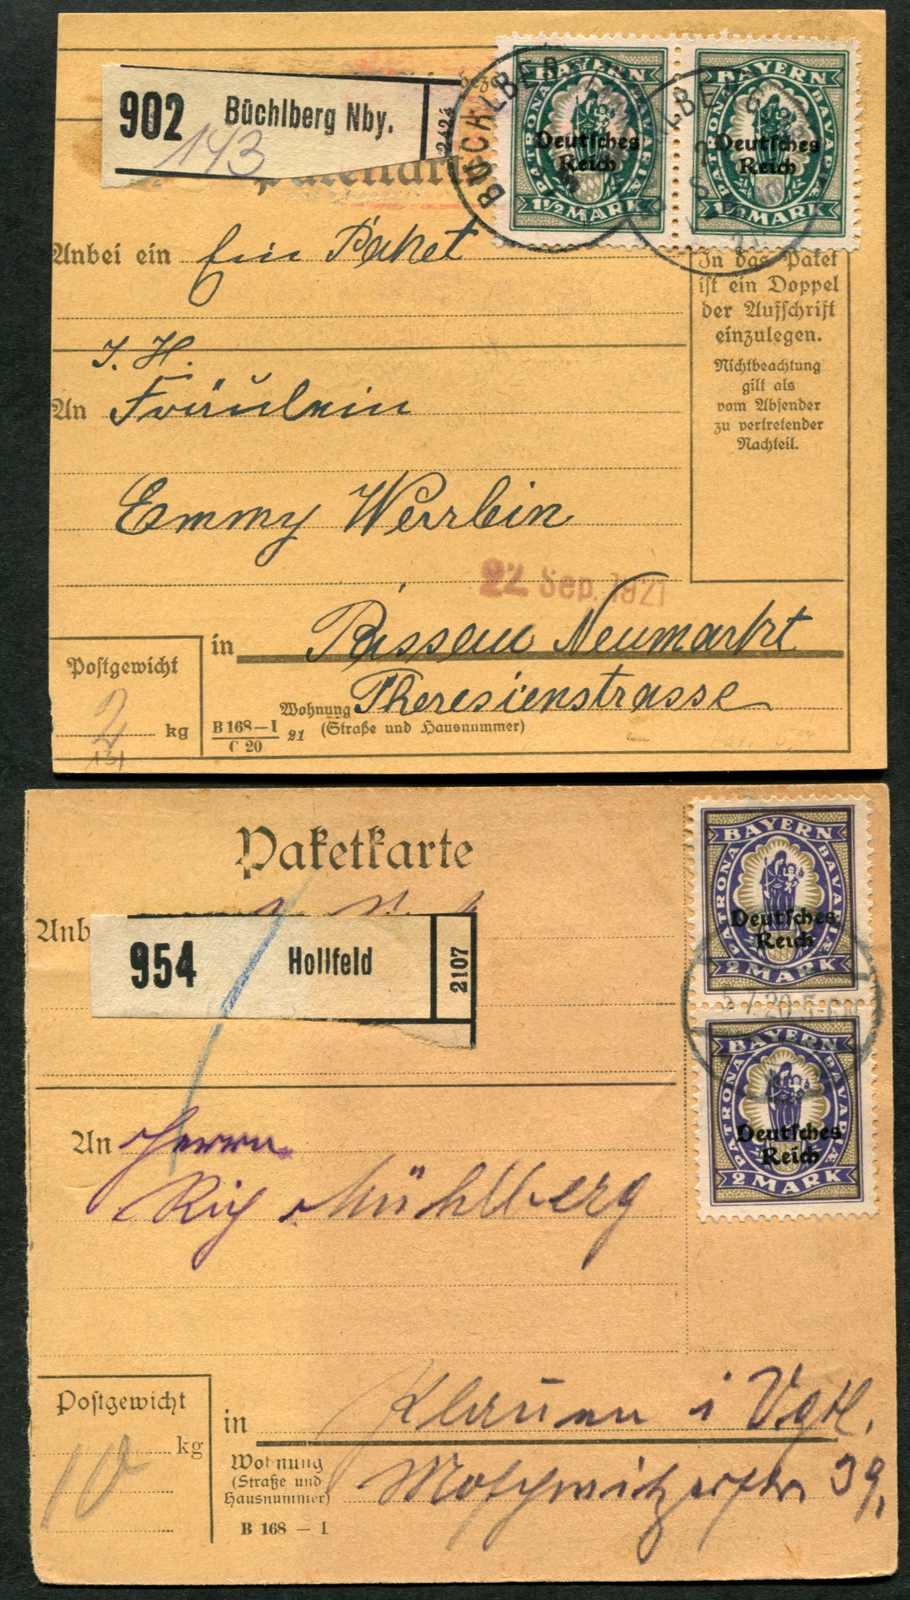 902 Büchlberg Nby.
143
2424
BÜCHLBERG
BAYERN
PATRONA BAVARIÆ
Deutsches
Reich
1½ MARK
BAYERN
PATRONA BAVARIÆ
Deutsches
Reich
1½ MARK
Anbei ein Ein Paket
In das Paket
ist ein Doppel
der Aufschrift
einzulegen.
Nichtbeachtung
gilt als
vom Absender
zu vertretender
Nachteil.
An Fräulein
Emmy Werrlein
22. Sep. 1921
in Neumarkt
Theresienstrasse
Wohnung
(Straße und Hausnummer)
Postgewicht
2 kg
B 168—I
C 20
21
Paketkarte
Anb
954 Hollfeld
2107
BAYERN
PATRONA BAVARIÆ
Deutsches
Reich
2 MARK
BAYERN
PATRONA BAVARIÆ
Deutsches
Reich
2 MARK
An Herrn
Rich Mühlberg
in Plauen i Vgtl.
39,
Wohnung
(Straße und
Hausnummer)
Postgewicht
10 kg
B 168 — I